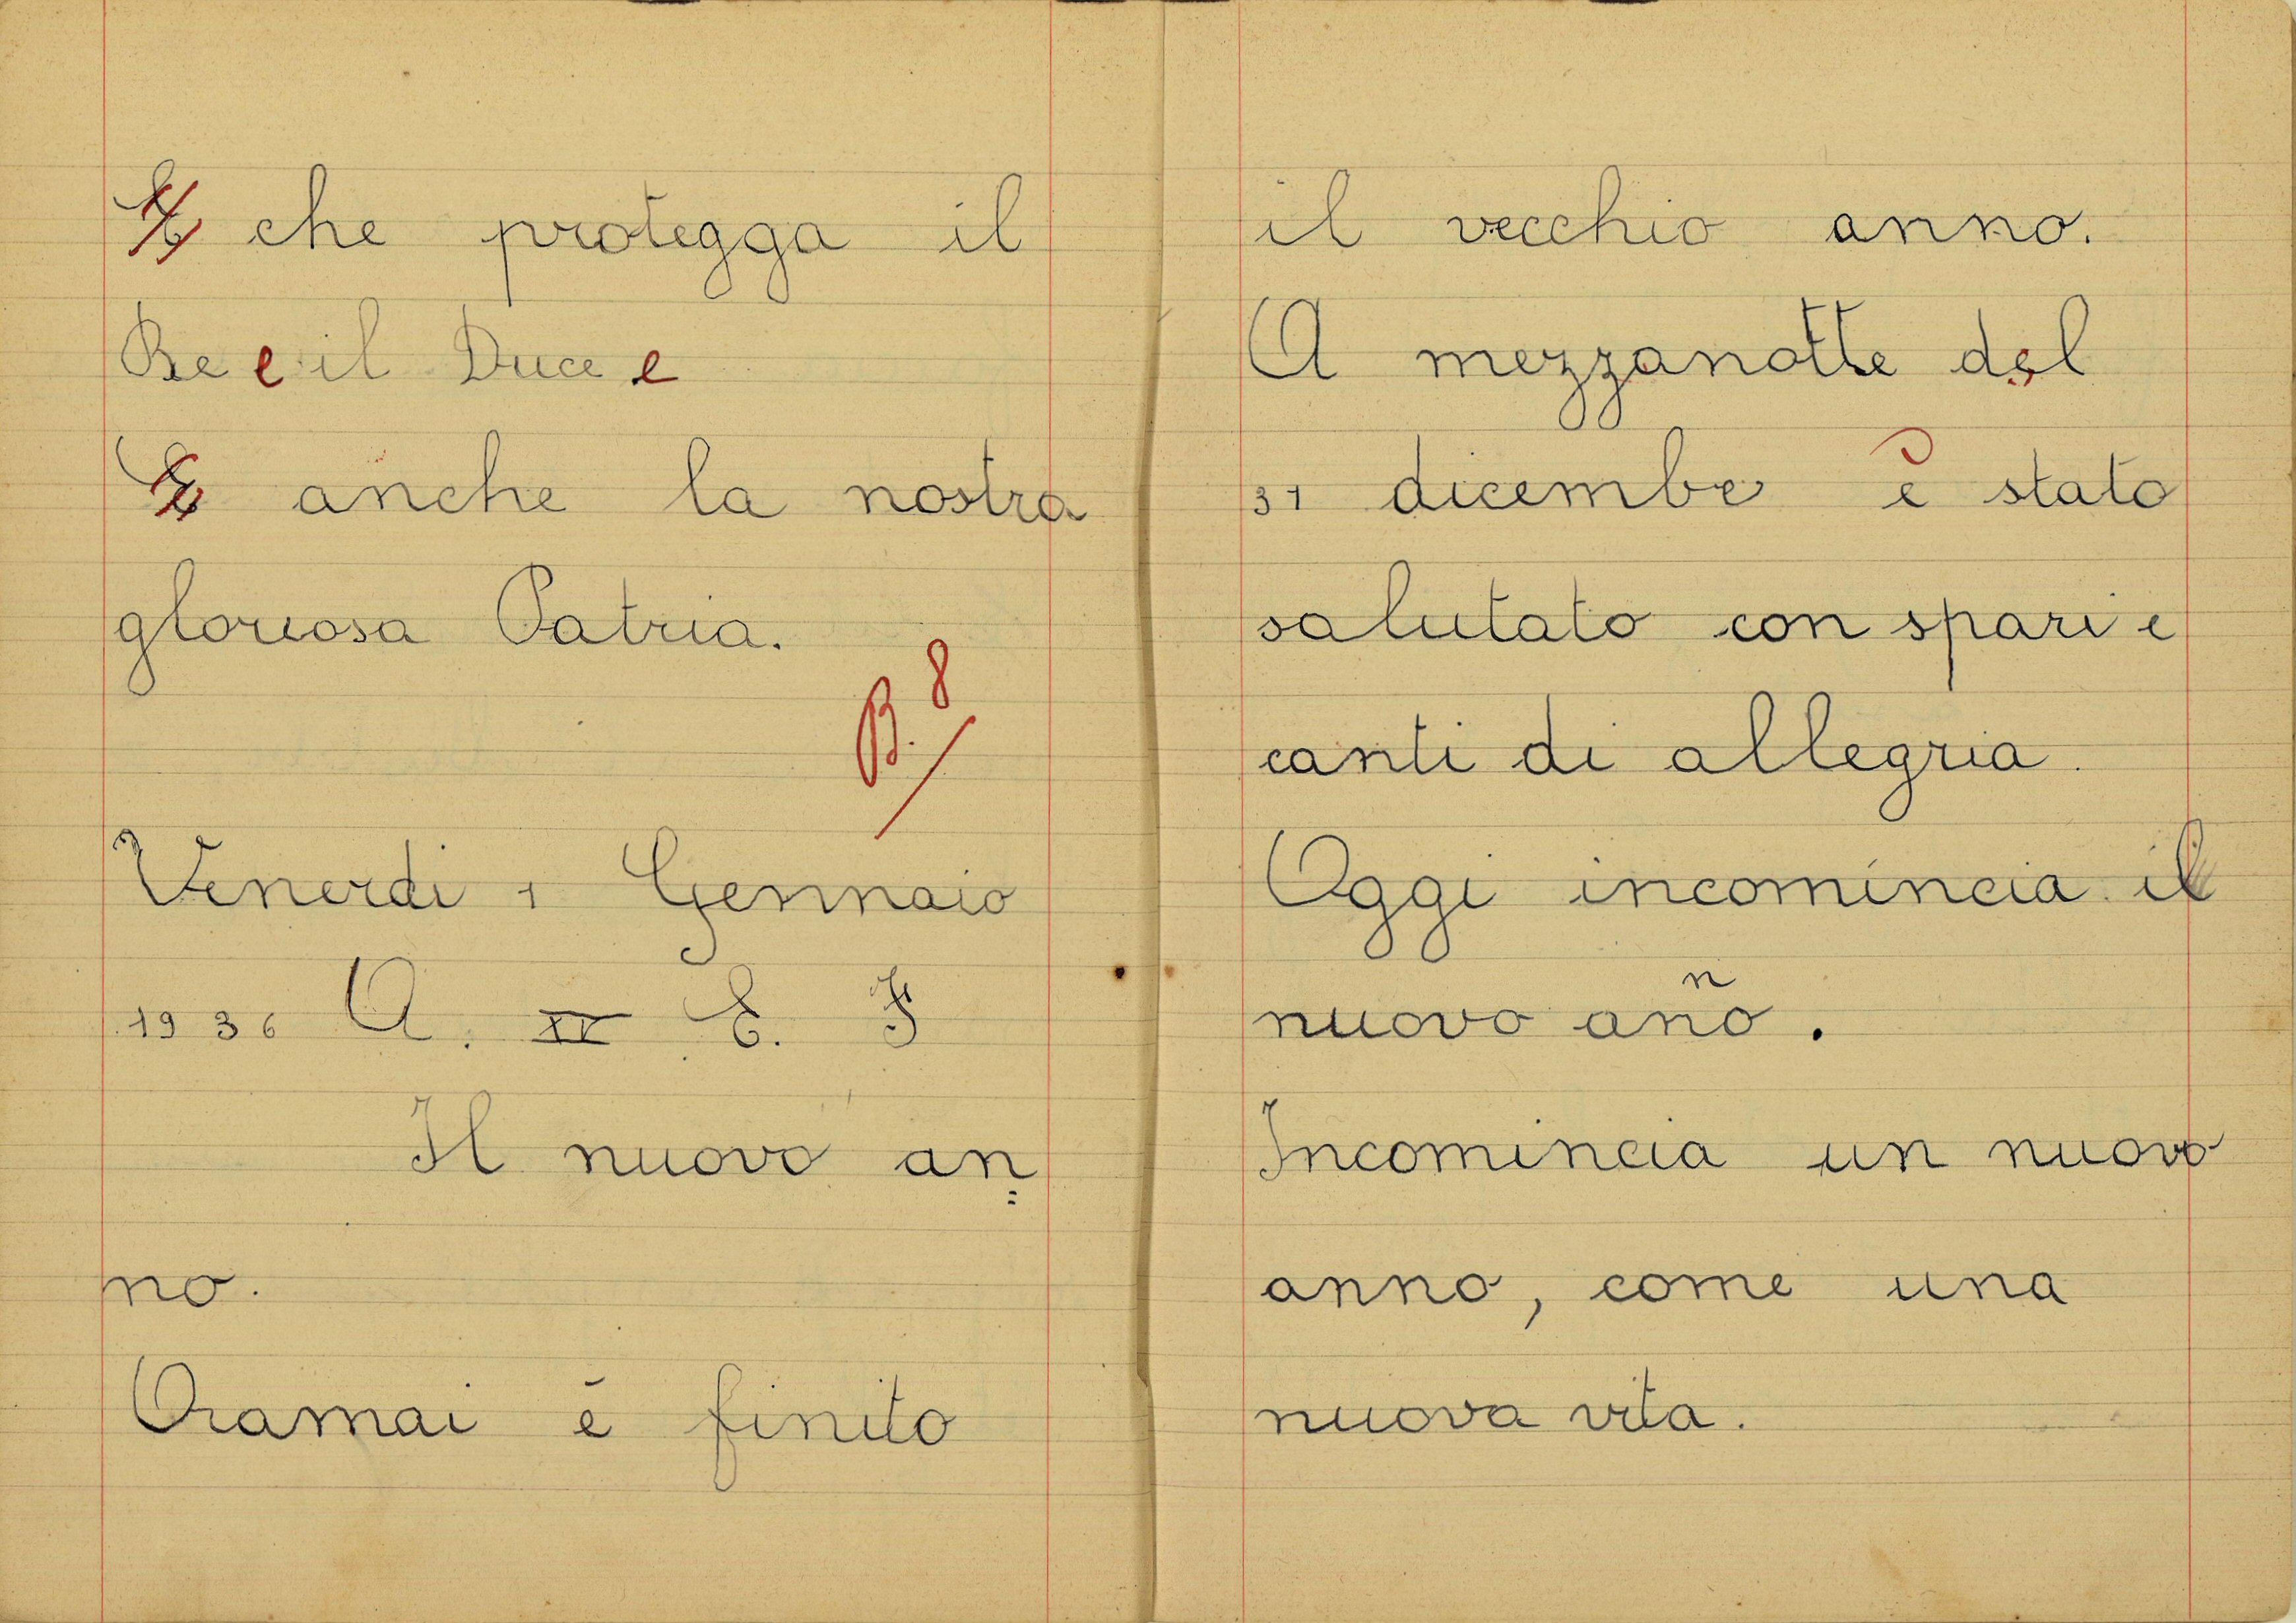 E che protegga il
Re e il Duce e
E anche la nostra
gloriosa Patria.
B. 8
Venerdi 1 Gennaio
1936 A. XV E. F
Il nuovo an=
no.
Oramai è finito
il vecchio anno.
A mezzanotte del
31 dicembre è stato
salutato con spari e
canti di allegria.
Oggi incomincia il
n
nuovo ano.
Incomincia un nuovo
anno, come una
nuova vita.